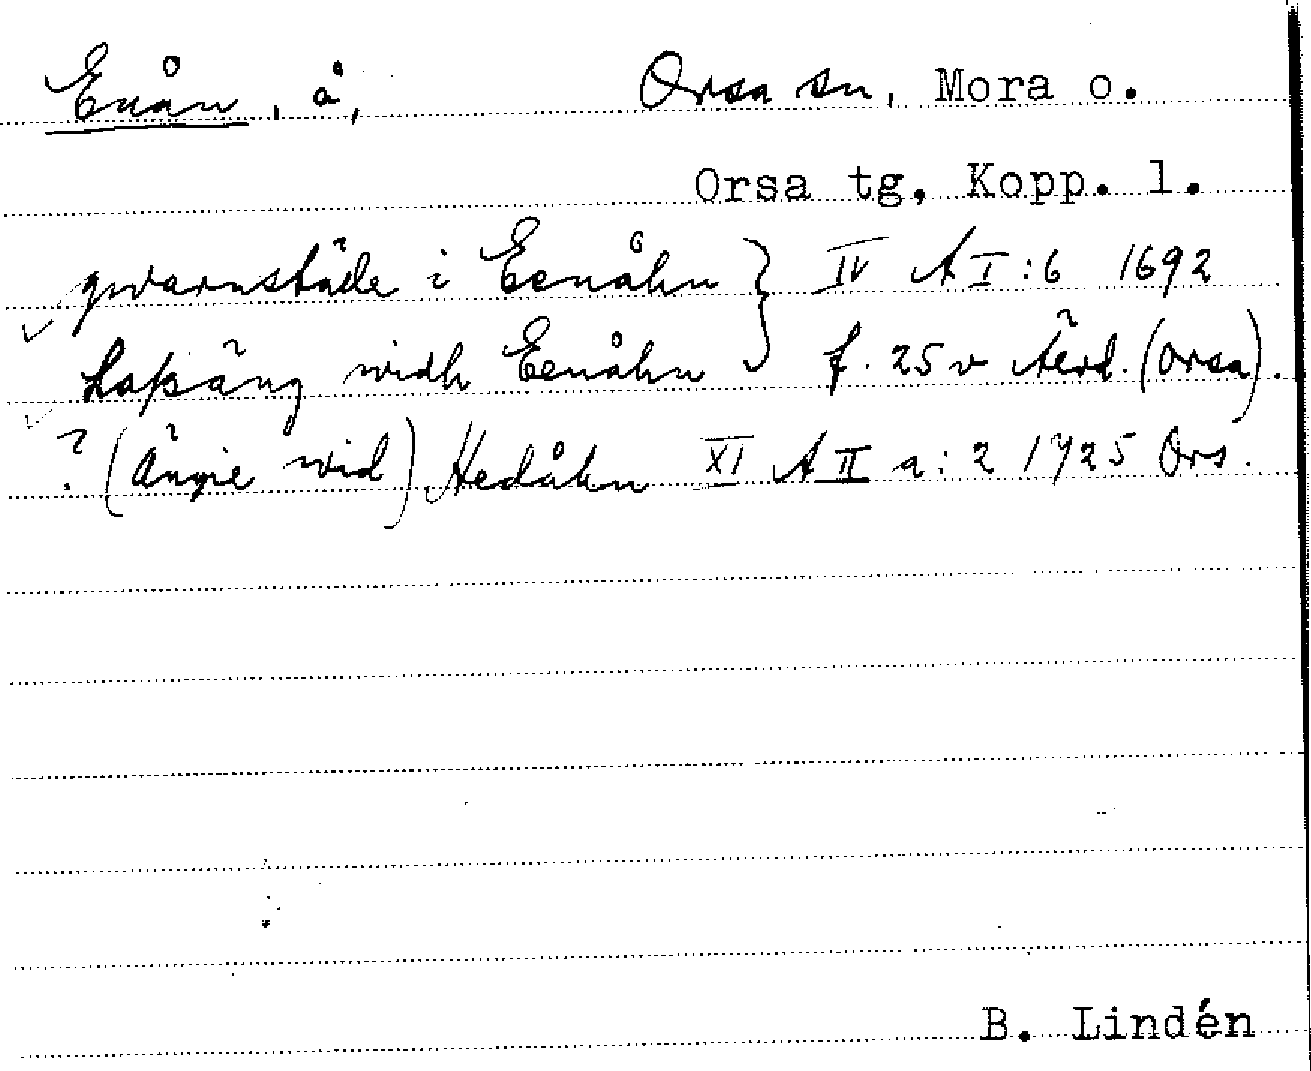 Enån, å, Orsa sn, Mora o.
Orsa tg, Kopp. l.
qvarnställe i Eenåhn } IV A I:6 1692
Laßäng widh Eenåhn f. 25 v (Orsa).
? (Ängie wid) Hedåhn XI A II a:2 1725 Ors.
B. Lindén